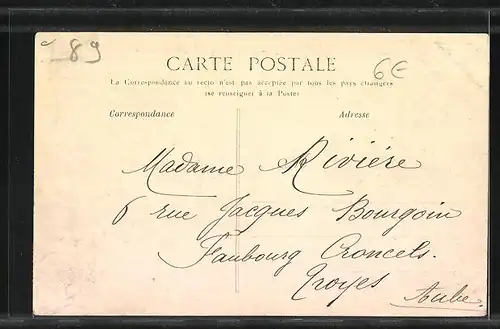 89
6€
CARTE POSTALE
La Correspondance au recto n'est pas acceptée par tous les pays étrangers
(se renseigner à la Poste)
Correspondance Adresse
Madame Rivière
6 rue Jacques Bourgoin
Faubourg Croncels.
Troyes
Aube.